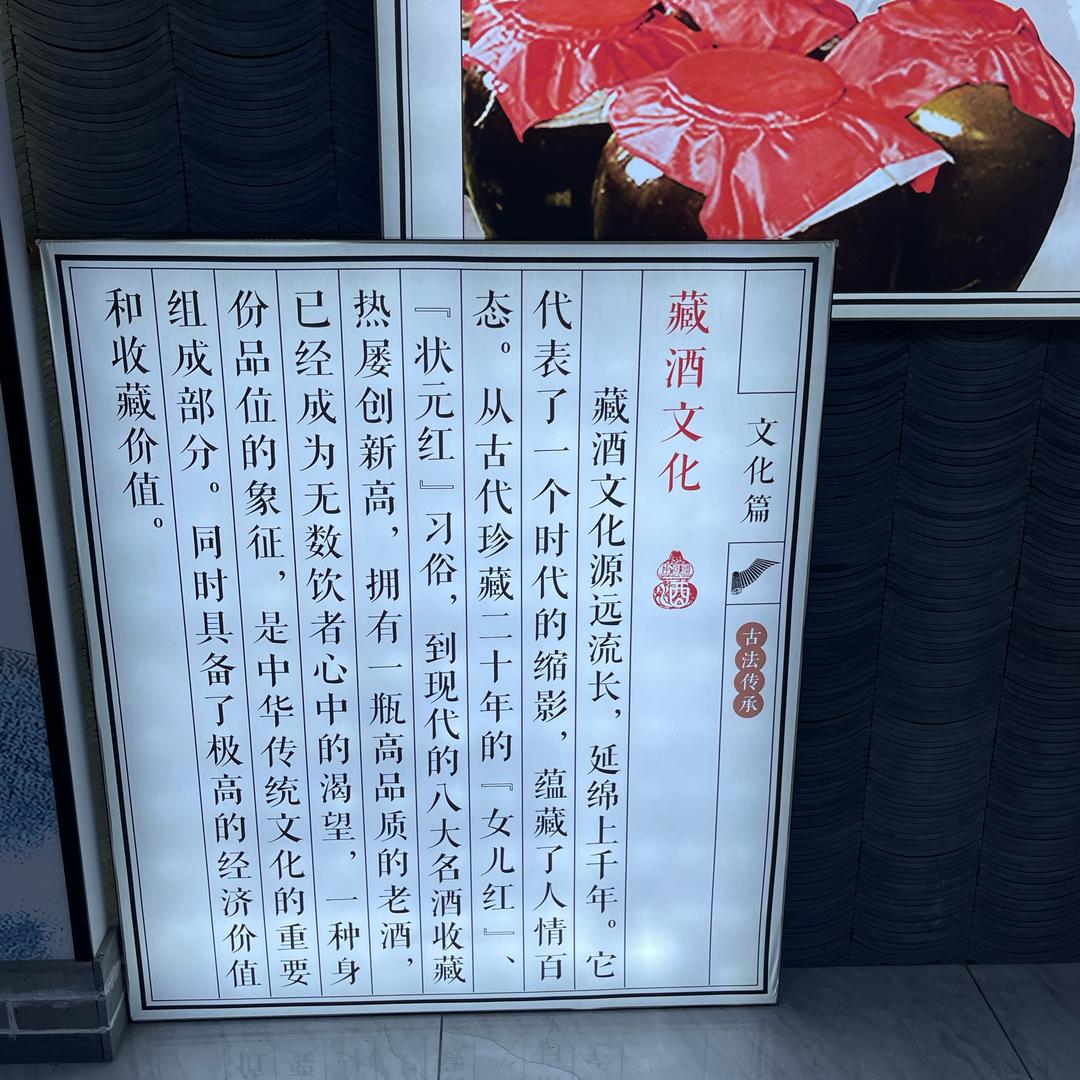 文化篇
古法传承
藏酒文化
酒
藏酒文化源远流长，延绵上千年。它
代表了一个时代的缩影，蕴藏了人情百
态。从古代珍藏二十年的『女儿红』、
『状元红』习俗，到现代的八大名酒收藏
热屡创新高，拥有一瓶高品质的老酒，
已经成为无数饮者心中的渴望，一种身
份品位的象征，是中华传统文化的重要
组成部分。同时具备了极高的经济价值
和收藏价值。